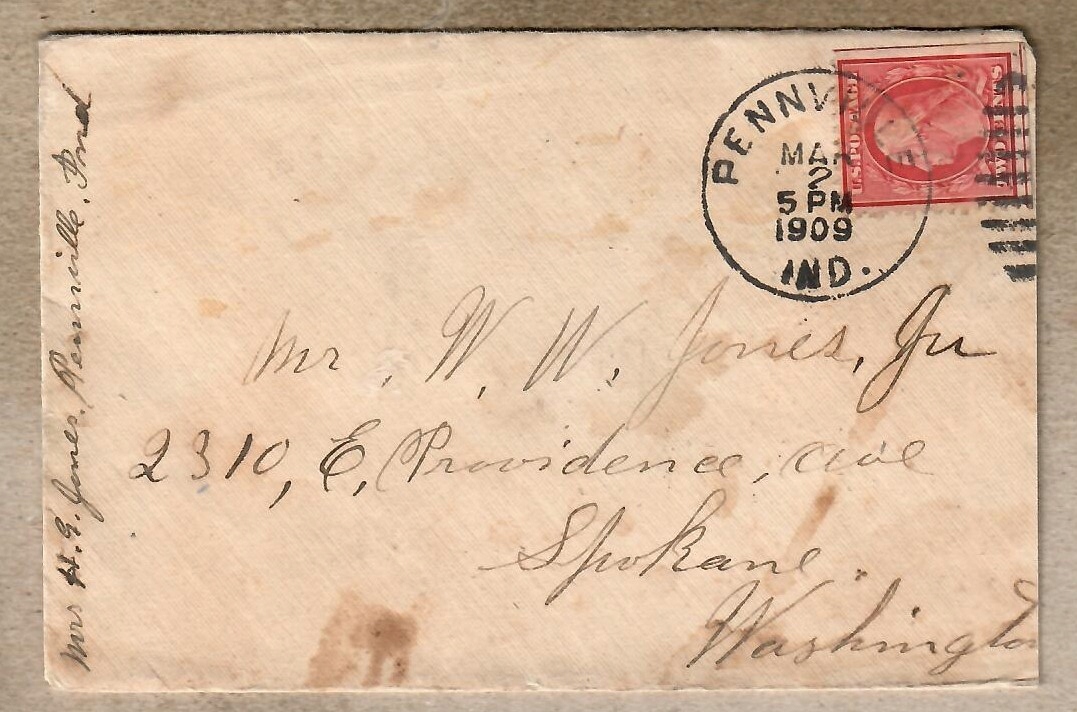 Mrs H. G. Jones, Pennville, Ind
PENNVILLE
MAR
2
5 PM
1909
IND.
U.S. POSTAGE
TWO CENTS
Mr. W. W. Jones, Jr
2310, E, Providence, ave
Spokane.
Washington